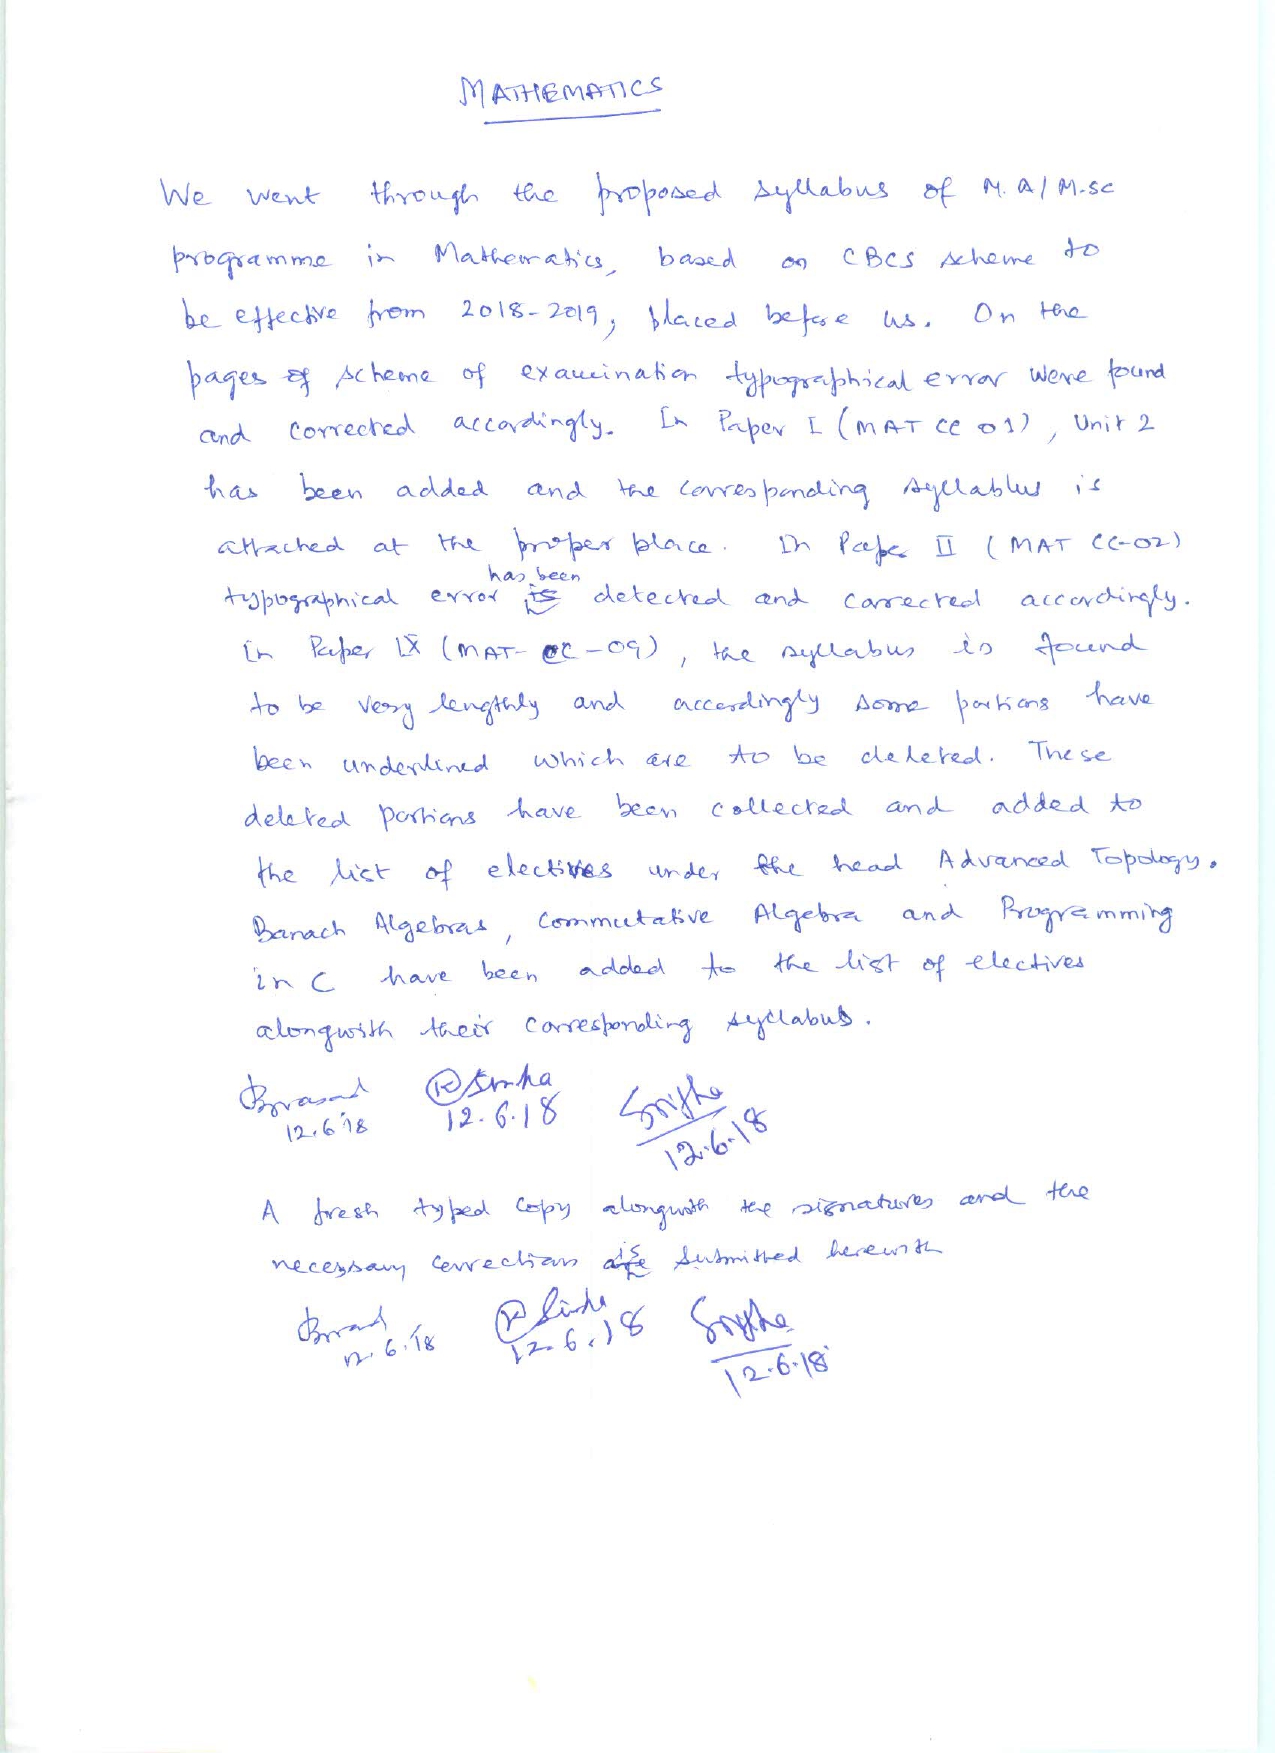 MATHEMATICS
We went through the proposed syllabus of M.A/M.sc
programme in Mathematics, based on CBCS scheme to
be effective from 2018-2019, placed before us. On the
pages of scheme of examination typographical error were found
and corrected accordingly. In Paper I (MAT CC 01), Unit 2
has been added and the corresponding syllablus is
attached at the proper place. In Paper II (MAT CC-02)
has been
typographical error is detected and corrected accordingly.
In Paper IX (MAT-CC-09), the syllabus is found
to be very lengthly and accordingly some portions have
been underlined which are to be deleted. These
deleted portions have been collected and added to
the list of electives under the head Advanced Topology.
Banach Algebras, Commutative Algebra and Programming
in C have been added to the list of electives
alongwith their corresponding syllabus.
Prasad RSinha
12.6.18 12.6.18
12.6.18
A fresh typed copy alongwith the signatures and the
is
necessary corrections are submitted herewith
RSinha
12.6.18 12.6.18
12.6.18